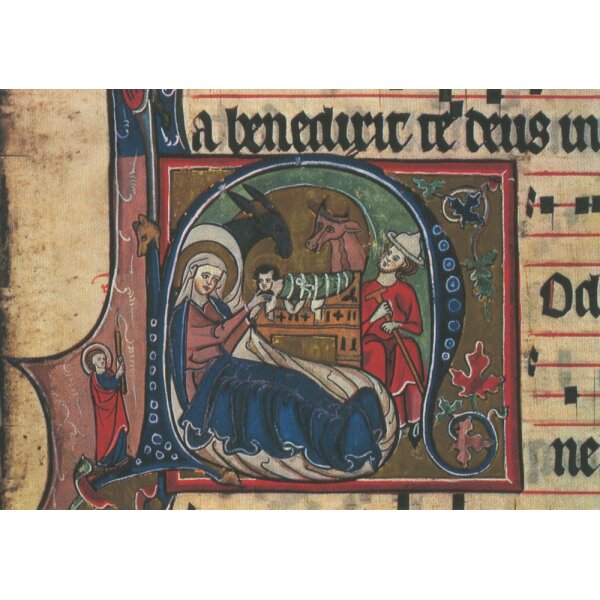 a benedixit te deus in
Od
ne